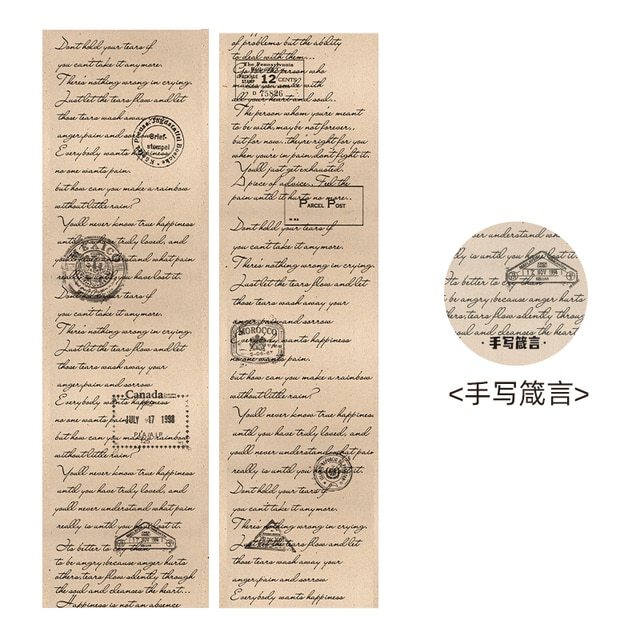 Dont hold your tears if
you cant take it anymore.
Theres nothing wrong in crying.
Just let the tears flow and let
those tears wash away
anger,pain and sorrow
Everybody wants happiness
no one wants pain.
but how can you make a rainbow
without little rain?
Youll never know true happiness
until you have truly loved, and
youll never understand what pain
really is until you have lost it.
Dont hold your tears if
you cant take it anymore.
Theres nothing wrong in crying.
Just let the tears flow and let
those tears wash away your
anger,pain and sorrow
Everybody wants happiness
no one wants pain.
but how can you make a rainbow
without little rain?
Youll never know true happiness
until you have truly loved, and
youll never understand what pain
really is until you have lost it.
Its better to cry than
to be angry;because anger hurts
others,tears flow silently through
the soul and cleanses the heart...
Happiness is not an absence
Brief-
stempel
MEXICO
Canada
JULY 17 1998
of problems but the ability
to deal with them...
Go for the person who
all your heart and soul..
The person whom you're meant
to be with,may be not forever,.
but for now, they're right for you
when you're in pain,dont fight it.
You'll just get exhausted.
A piece of advice.. Feel the
pain until it hurts no more..
Dont hold your tears if
you cant take it anymore.
Theres nothing wrong in crying.
Just let the tears flow and let
those tears wash away your
anger,pain and sorrow
Everybody wants happiness
no one wants pain.
but how can you make a rainbow
without little rain?
Youll never know true happiness
until you have truly loved, and
youll never understand what pain
really is until you have lost it.
Dont hold your tears if
you cant take it anymore.
Theres nothing wrong in crying.
Just let the tears flow and let
those tears wash away your
anger,pain and sorrow
Everybody wants happiness
The Pennsylvania
12 CENTS
75826
PARCEL POST
MOROCCO
never understand wh
is until you have lost it.
Its better to cry
be angry;because anger hurts
hers,tears flow silently throug
soul and cleanses the heart
17 NOV 1994
·手写箴言·
<手写箴言>